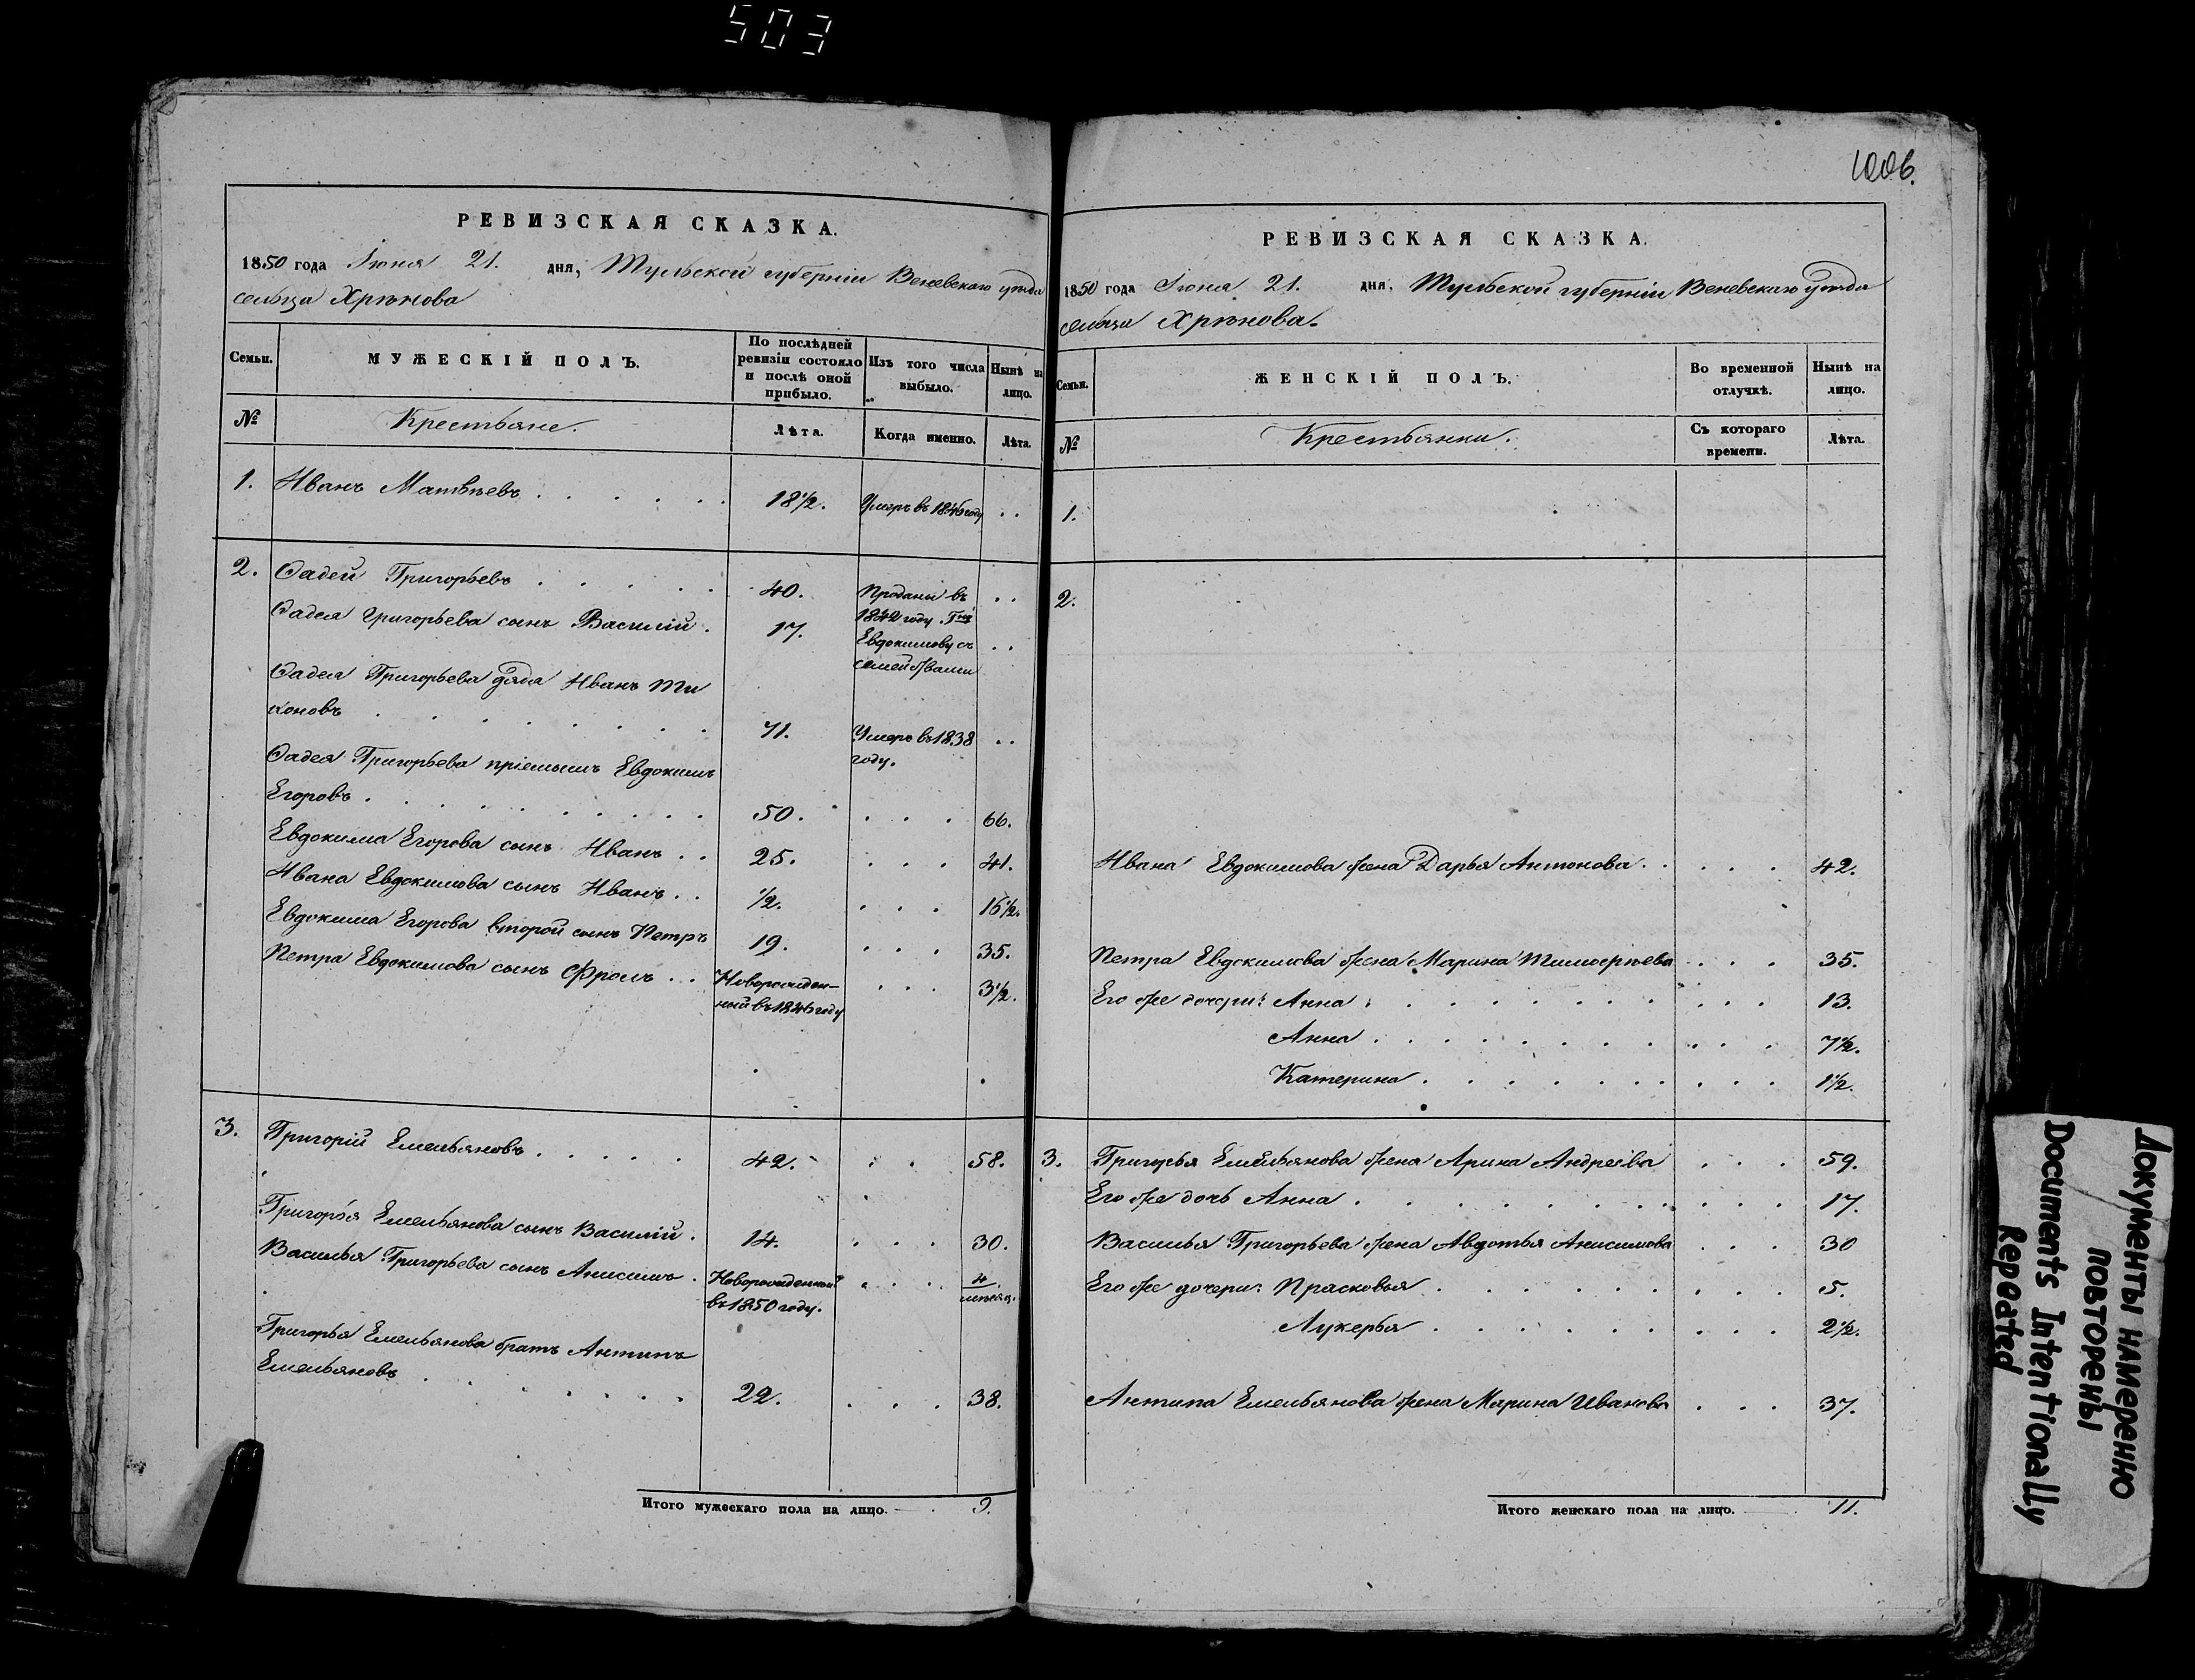 503
1006.
РЕВИЗСКАЯ СКАЗКА.
1850 года Іюня 21. дня, Тульской губерніи Веневскаго уѣзда
сельца Хрѣнова
Семьи.
МУЖЕСКІЙ ПОЛЪ.
По послѣдней ревизіи состояло и послѣ оной прибыло.
Изъ того числа выбыло.
Нынѣ на лицо.
№
Крестьяне.
Лѣта.
Когда именно.
Лѣта.
1. Иванъ Матвѣевъ . . . . . . 18½. Умеръ въ 1846 году . .
2. Фадей Григорьевъ . . . . . 40. Проданы въ . .
Фадея Григорьева сынъ Василій . 17. 1842 году Г-ну . .
Евдокимову съ
семействами
Фадея Григорьева дядя Иванъ Ти
хоновъ . . . . . . . 71. Умеръ въ 1838 . .
году.
Фадея Григорьева пріемышъ Евдокимъ
Егоровъ . . . . . . . . 50. . . . 66.
Евдокима Егорова сынъ Иванъ . . 25. . . . 41.
Ивана Евдокимова сынъ Иванъ . . ½. . . . 16½.
Евдокима Егорова второй сынъ Петръ 19. . . . 35.
Петра Евдокимова сынъ Фролъ . . Новорожден- . . . 3½.
ный въ 1846 году
3. Григорій Емельяновъ . . . . . 42. . . 58.
Григорья Емельянова сынъ Василій . 14. . . . 30.
Василья Григорьева сынъ Анисимъ . Новорожденный . . . 4
въ 1850 году. мѣсяц.
Григорья Емельянова братъ Антипъ
Емельяновъ . . . . . . 22. . . . 38.
Итого мужескаго пола на лицо. 9.
РЕВИЗСКАЯ СКАЗКА.
1850 года Іюня 21. дня, Тульской губерніи Веневскаго уѣзда
сельца Хрѣнова.
Семьи.
ЖЕНСКІЙ ПОЛЪ.
Во временной отлучкѣ.
Нынѣ на лицо.
№
Крестьянки.
Съ котораго времени.
Лѣта.
1.
2.
Ивана Евдокимова жена Дарья Антонова . . . . . 42.
Петра Евдокимова жена Марина Тимоѳѣева . . . 35.
Его же дочери: Анна . . . . . . . . . . . 13.
Анна . . . . . . . . . . . 7½.
Катерина . . . . . . . . . . 1½.
3. Григорья Емельянова жена Арина Андреева . . . 59.
Его же дочь Анна . . . . . . . . . . . 17.
Василья Григорьева жена Авдотья Анисимова . . . 30
Его же дочери: Прасковья . . . . . . . . . 5.
Лукерья . . . . . . . . . 2½.
Антипа Емельянова жена Марина Иванова . . . 37.
Итого женскаго пола на лицо. 11.
Документы намеренно
повторены
Documents Intentionally
Repeated